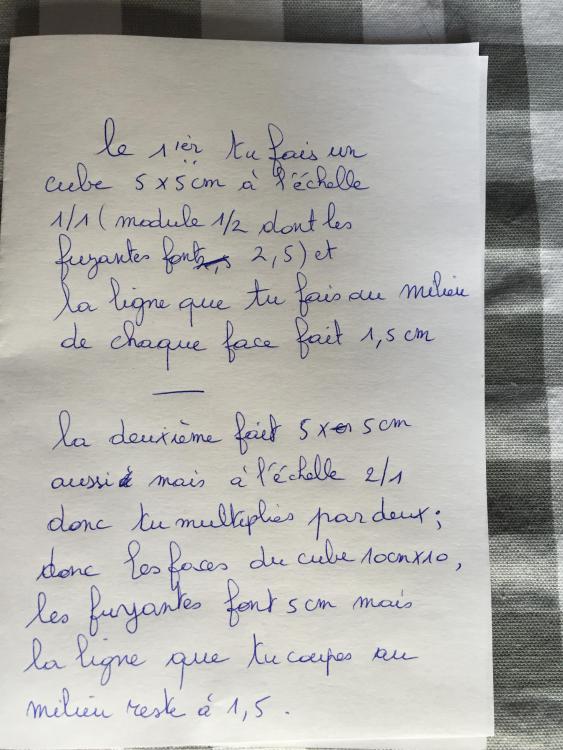 le 1ièr tu fais un
cube 5 x 5 cm à l'échelle
1/1 ( module 1/2 dont les
fuyantes font 2,5) et
la ligne que tu fais au milieu
de chaque face fait 1,5 cm
la deuxième fait 5 x 5 cm
aussi mais à l'échelle 2/1
donc tu multiplies par deux ;
donc les faces du cube 10cmx10,
les fuyantes font 5 cm mais
la ligne que tu coupes au
milieu reste à 1,5 .